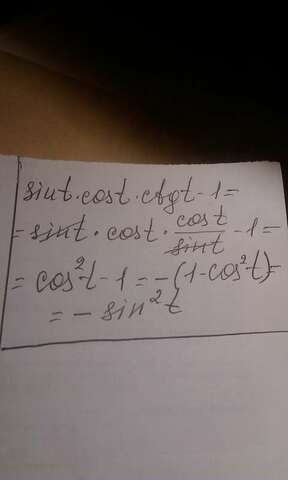 sint·cost·ctgt-1=
=sint·cost·cost/sint-1=
=cos²t-1=-(1-cos²t)=
=-sin²t